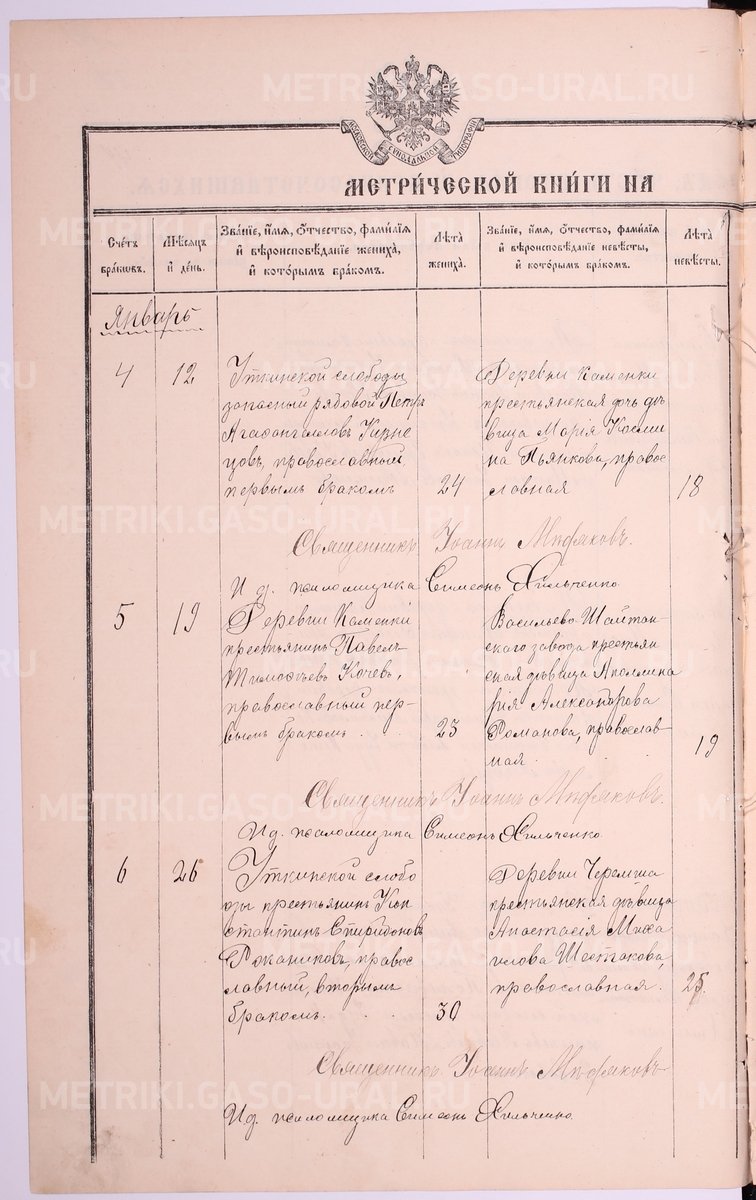 METRIKI.GASO-URAL.RU
МОСКОВСКОЙ СѴНОДАЛЬНОЙ ТИПОГРАФІИ
МЕТРИ́ЧЕСКОЙ КНИ́ГИ НА
Сче́тъ бра́кωвъ.
Мѣ́сѧцъ и҆ де́нь.
Зва́нїе, и҆́мѧ, ѻ҆́тчество, фамѝлїѧ и҆ вѣроисповѣ́данїе жениха̀, и҆ кото́рымъ бра́комъ.
Лѣ́та жениха̀.
Зва́нїе, и҆́мѧ, ѻ҆́тчество, фамѝлїѧ и҆ вѣроисповѣ́данїе невѣ́сты, и҆ кото́рымъ бра́комъ.
Лѣ́та невѣ́сты.
Январь
4
12
Уткинской слободы
запасный рядовой Петръ
Агафангеловъ Кузне
цовъ, православный
первымъ бракомъ
24
Деревни Каменки
крестьянская дочь дѣ
вица Марія Косми
на Пьянкова, правос
лавная
18
Священникъ Іоаннъ
И. д. псаломщика Симеонъ Хильченко
5
19
Деревни Каменки
крестьянинъ Павелъ
Тимофѣевъ Кочевъ,
православный пер-
вымъ бракомъ.
23
Васильево-Шайтан
скаго завода крестьян
ская дѣвица Аполлина
рія Александрова
Романова, православ-
ная.
19
Священникъ Іоаннъ
И. д. псаломщика Симеонъ Хильченко
6
26
Уткинской слобо
ды крестьянинъ Кон
стантинъ Спиридоновъ
Рожаниковъ, правос
лавный, вторымъ
бракомъ.
30
Деревни Черемша
крестьянская дѣвица
Анастасія Миха
илова Шестакова,
православная.
25.
Священникъ Іоаннъ
И. д. псаломщика Симеонъ Хильченко